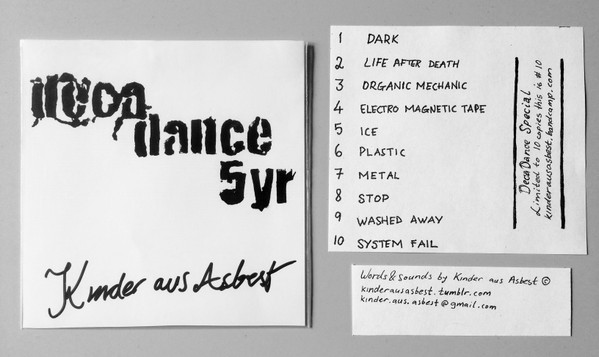 Deca
dance
5yr
Kinder aus Asbest
1 DARK
2 LIFE AFTER DEATH
3 ORGANIC MECHANIC
4 ELECTRO MAGNETIC TAPE
5 ICE
6 PLASTIC
7 METAL
8 STOP
9 WASHED AWAY
10 SYSTEM FAIL
DecaDance Special
Limited to 10 copies this is #10
kinderausasbest.bandcamp.com
Words & sounds by Kinder aus Asbest ©
kinderausasbest.tumblr.com
kinder.aus.asbest@gmail.com